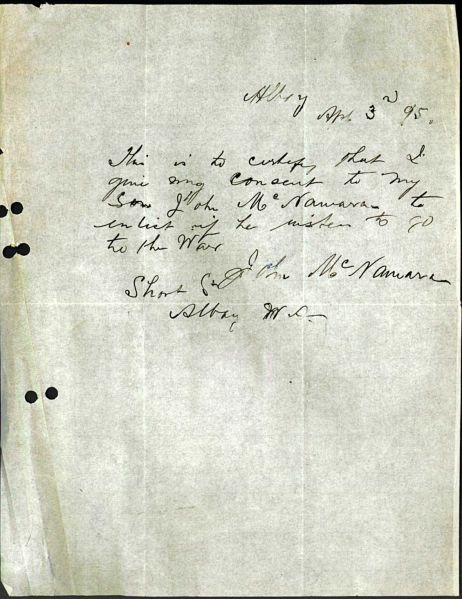 Albany
Apl 3rd 95.
This is to certify that I
give my consent to my
Son John McNamara to
enlist if he wishes to go
to the War
John McNamara
Short St
Albany W.A.